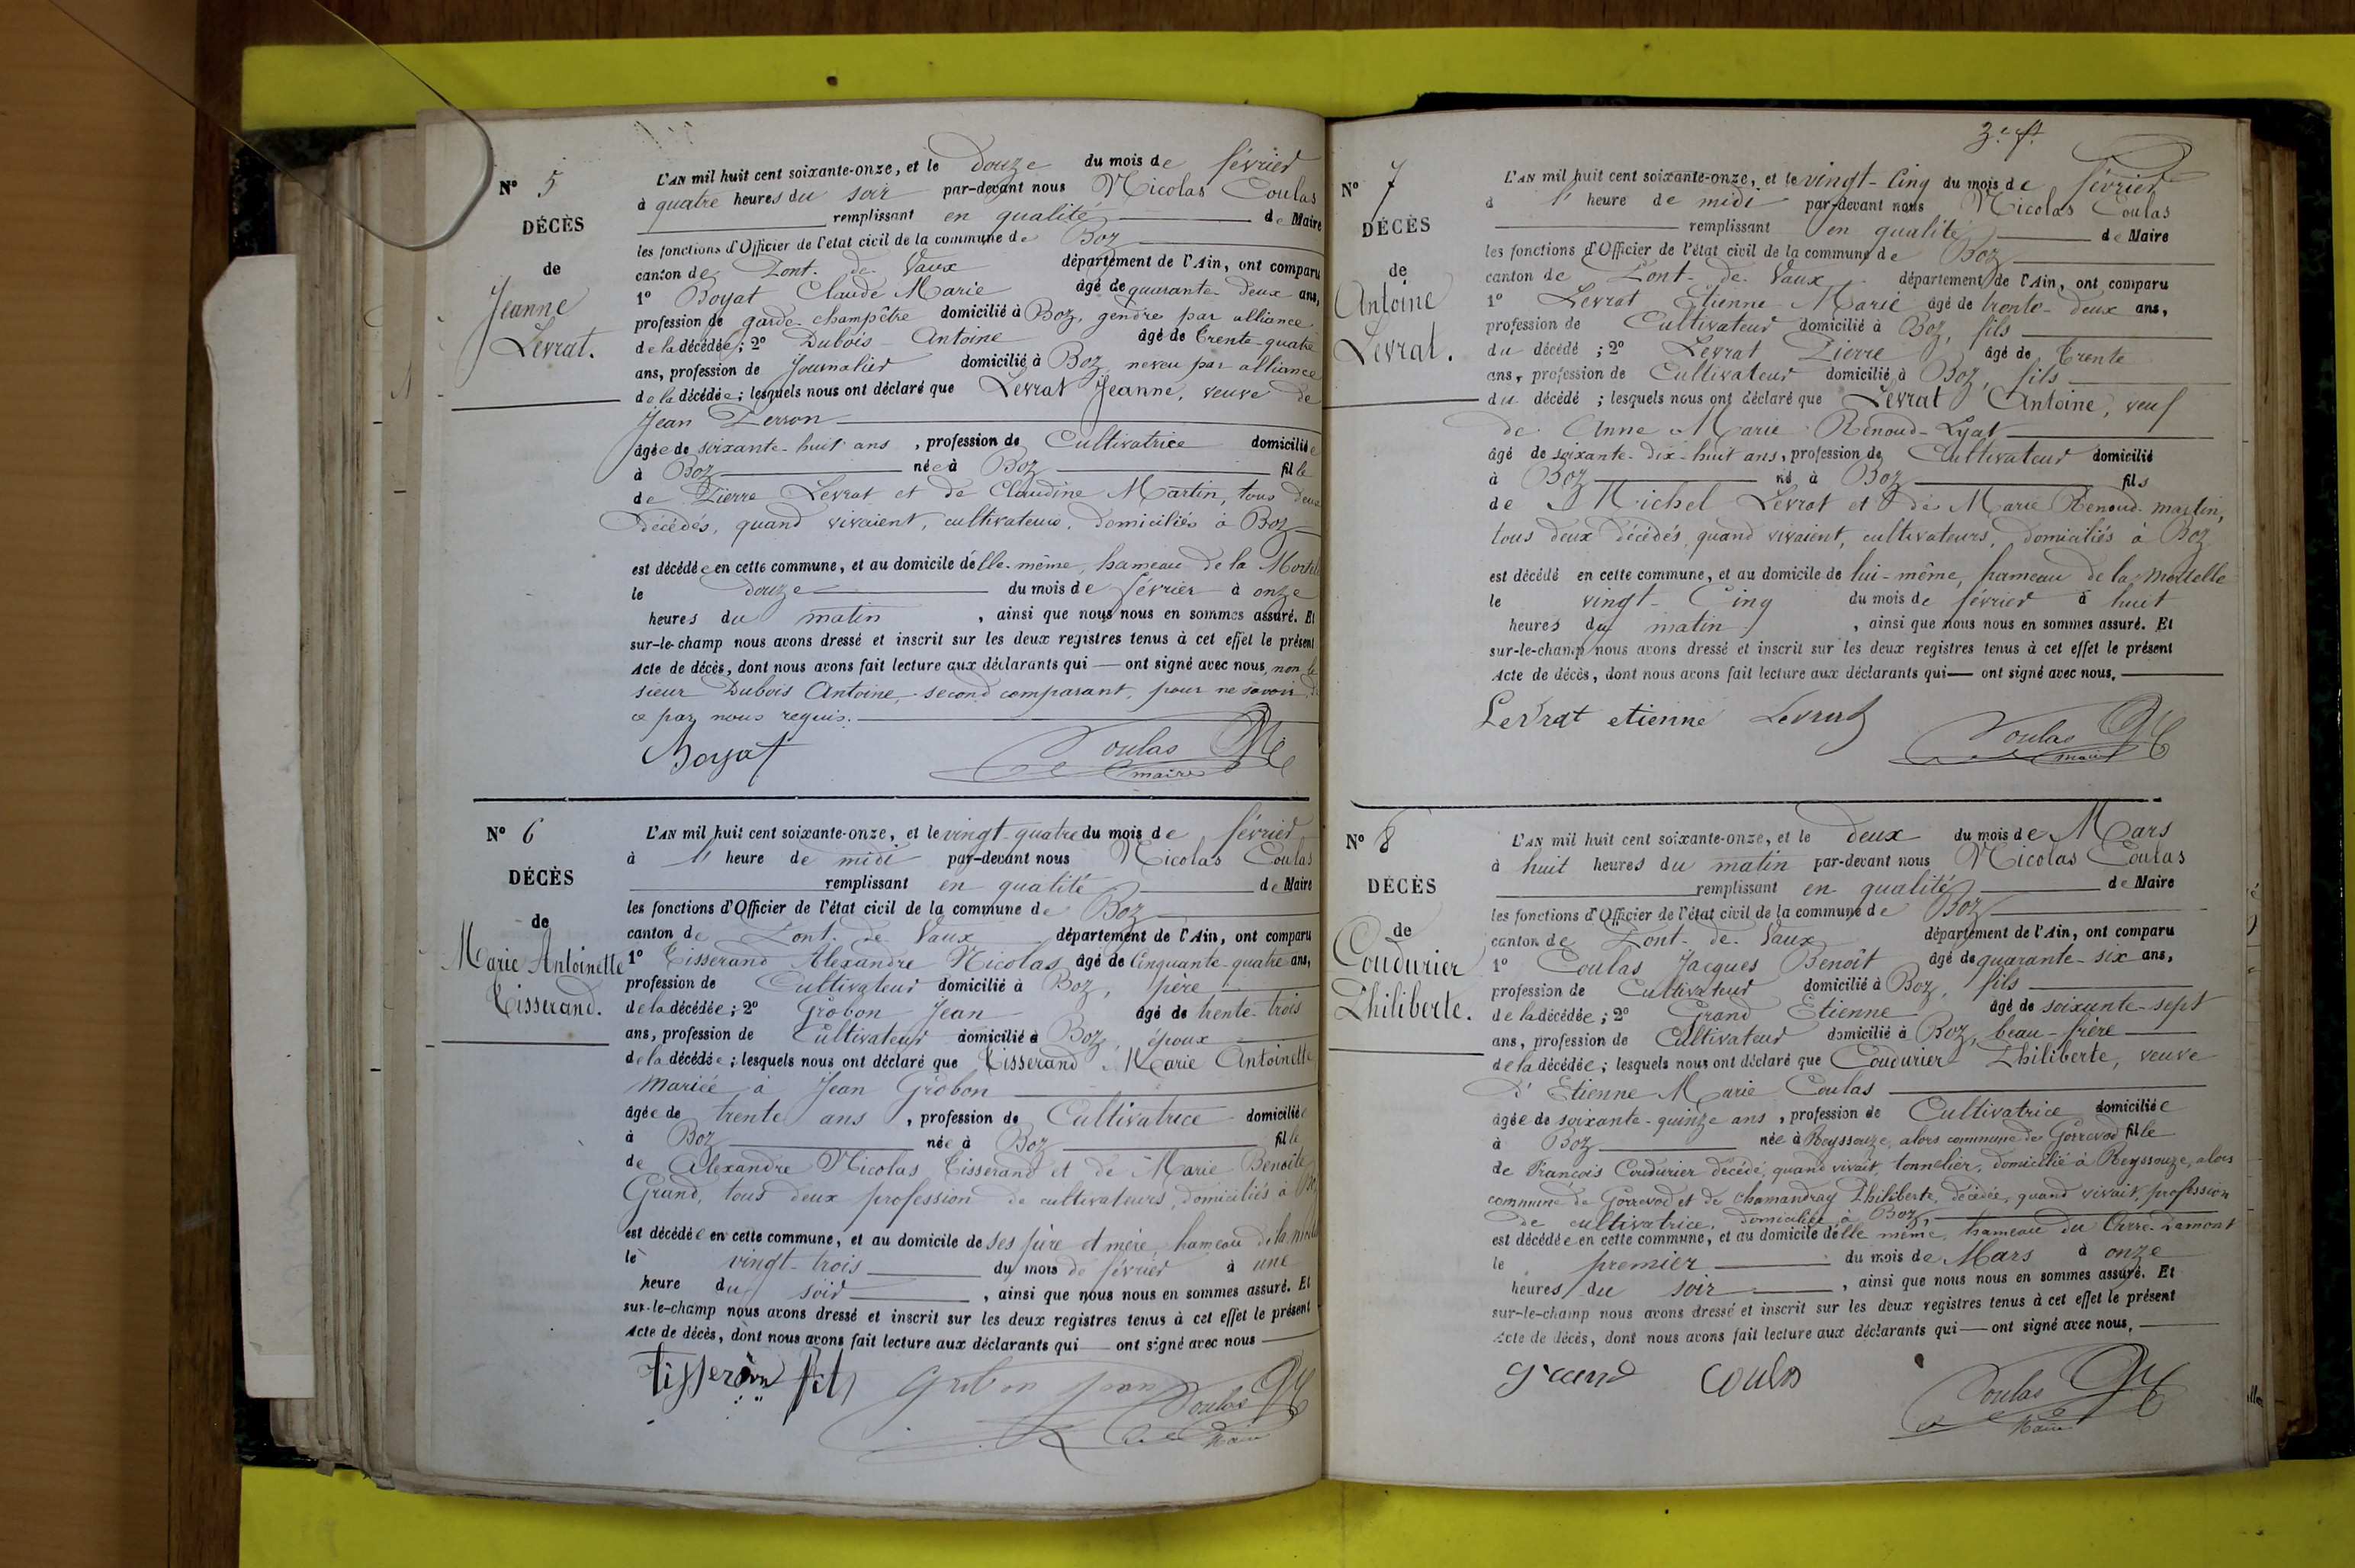 N° 5
DÉCÈS
de
Jeanne
Levrat.
L'AN mil huit cent soixante-onze, et le douze du mois de février
à quatre heures du soir par-devant nous Nicolas Coulas
remplissant en qualité de Maire
les fonctions d'Officier de l'état civil de la commune de Boz
canton de Pont-de-Vaux département de l'Ain, ont comparu
1° Boyat Claude Marie âgé de quarante-deux ans,
profession de garde-champêtre domicilié à Boz, gendre par alliance
de la décédée; 2° Dubois Antoine âgé de trente-quatre
ans, profession de Journalier domicilié à Boz neveu par alliance
de la décédée; lesquels nous ont déclaré que Levrat Jeanne, veuve de
Jean Perron
âgée de soixante-huit ans, profession de Cultivatrice domiciliée
à Boz née à Boz fille
de Pierre Levrat et de Claudine Martin, tous deux
décédés, quand vivaient, cultivateurs, domiciliés à Boz
est décédée en cette commune, et au domicile d'elle-même, hameau de la
le douze du mois de février à onze
heures du matin, ainsi que nous nous en sommes assuré. Et
sur-le-champ nous avons dressé et inscrit sur les deux registres tenus à cet effet le présent
Acte de décès, dont nous avons fait lecture aux déclarants qui — ont signé avec nous, non le
sieur Dubois Antoine, second comparant, pour ne savoir, de
ce par nous requis.
Boyat Coulas
maire
N° 6
DÉCÈS
de
Marie Antoinette
Tisserand.
L'AN mil huit cent soixante-onze, et le vingt-quatre du mois de février
à l' heure de midi par-devant nous Nicolas Coulas
remplissant en qualité de Maire
les fonctions d'Officier de l'état civil de la commune de Boz
canton de Pont-de-Vaux département de l'Ain, ont comparu
1° Tisserand Alexandre Nicolas âgé de Cinquante-quatre ans,
profession de Cultivateur domicilié à Boz, père
de la décédée; 2° Grobon Jean âgé de trente-trois
ans, profession de Cultivateur domicilié à Boz, époux
de la décédée; lesquels nous ont déclaré que Tisserand Marie Antoinette
mariée à Jean Grobon
âgée de trente ans, profession de Cultivatrice domiciliée
à Boz née à Boz fille
de Alexandre Nicolas Tisserand et de Marie Benoîte
Grand, tous deux profession de cultivateurs, domiciliés à Boz
est décédée en cette commune, et au domicile de ses père et mère, hameau de la
le vingt-trois du mois de février à une
heure du soir, ainsi que nous nous en sommes assuré. Et
sur-le-champ nous avons dressé et inscrit sur les deux registres tenus à cet effet le présent
Acte de décès, dont nous avons fait lecture aux déclarants qui — ont signé avec nous
Grobon Jean Coulas
Maire
N° 7
DÉCÈS
de
Antoine
Levrat.
3e ft
L'AN mil huit cent soixante-onze, et le vingt-Cinq du mois de février
à l' heure de midi par-devant nous Nicolas Coulas
remplissant en qualité de Maire
les fonctions d'Officier de l'état civil de la commune de Boz
canton de Pont-de-Vaux département de l'Ain, ont comparu
1° Levrat Etienne Marie âgé de trente-deux ans,
profession de Cultivateur domicilié à Boz, fils
du décédé; 2° Levrat Pierre âgé de trente
ans, profession de Cultivateur domicilié à Boz, fils
du décédé; lesquels nous ont déclaré que Levrat Antoine, veuf
de Anne Marie Renoud-Lyat
âgé de soixante-dix-huit ans, profession de Cultivateur domicilié
à Boz né à Boz fils
de Michel Levrat et de Marie Renoud-martin,
tous deux décédés, quand vivaient, cultivateurs, domiciliés à Boz
est décédé en cette commune, et au domicile de lui-même, hameau de la mortelle
le vingt-Cinq du mois de février à huit
heures du matin, ainsi que nous nous en sommes assuré. Et
sur-le-champ nous avons dressé et inscrit sur les deux registres tenus à cet effet le présent
Acte de décès, dont nous avons fait lecture aux déclarants qui — ont signé avec nous,
Levrat etienne Levrat Coulas
maire
N° 8
DÉCÈS
de
Coudurier
Philiberte.
L'AN mil huit cent soixante-onze, et le deux du mois de Mars
à huit heures du matin par-devant nous Nicolas Coulas
remplissant en qualité de Maire
les fonctions d'Officier de l'état civil de la commune de Boz
canton de Pont-de-Vaux département de l'Ain, ont comparu
1° Coulas Jacques Benoît âgé de quarante-six ans,
profession de Cultivateur domicilié à Boz, fils
de la décédée; 2° Grand Etienne âgé de soixante-sept
ans, profession de Cultivateur domicilié à Boz, beau-frère
de la décédée; lesquels nous ont déclaré que Coudurier Philiberte, veuve
d'Etienne Marie Coulas
âgée de soixante-quinze ans, profession de Cultivatrice domiciliée
à Boz née à Reyssouze, alors commune de Gorrevod fille
de François Coudurier décédé, quand vivait, tonnelier, domicilié à Reyssouze, alors
commune de Gorrevod et de Chamandray Philiberte, décédée, quand vivait, profession
de cultivatrice, domiciliée à Boz,
est décédée en cette commune, et au domicile d'elle même, hameau du
le premier du mois de Mars à onze
heures du soir, ainsi que nous nous en sommes assuré. Et
sur-le-champ nous avons dressé et inscrit sur les deux registres tenus à cet effet le présent
Acte de décès, dont nous avons fait lecture aux déclarants qui — ont signé avec nous,
grand Coulas Coulas
Maire